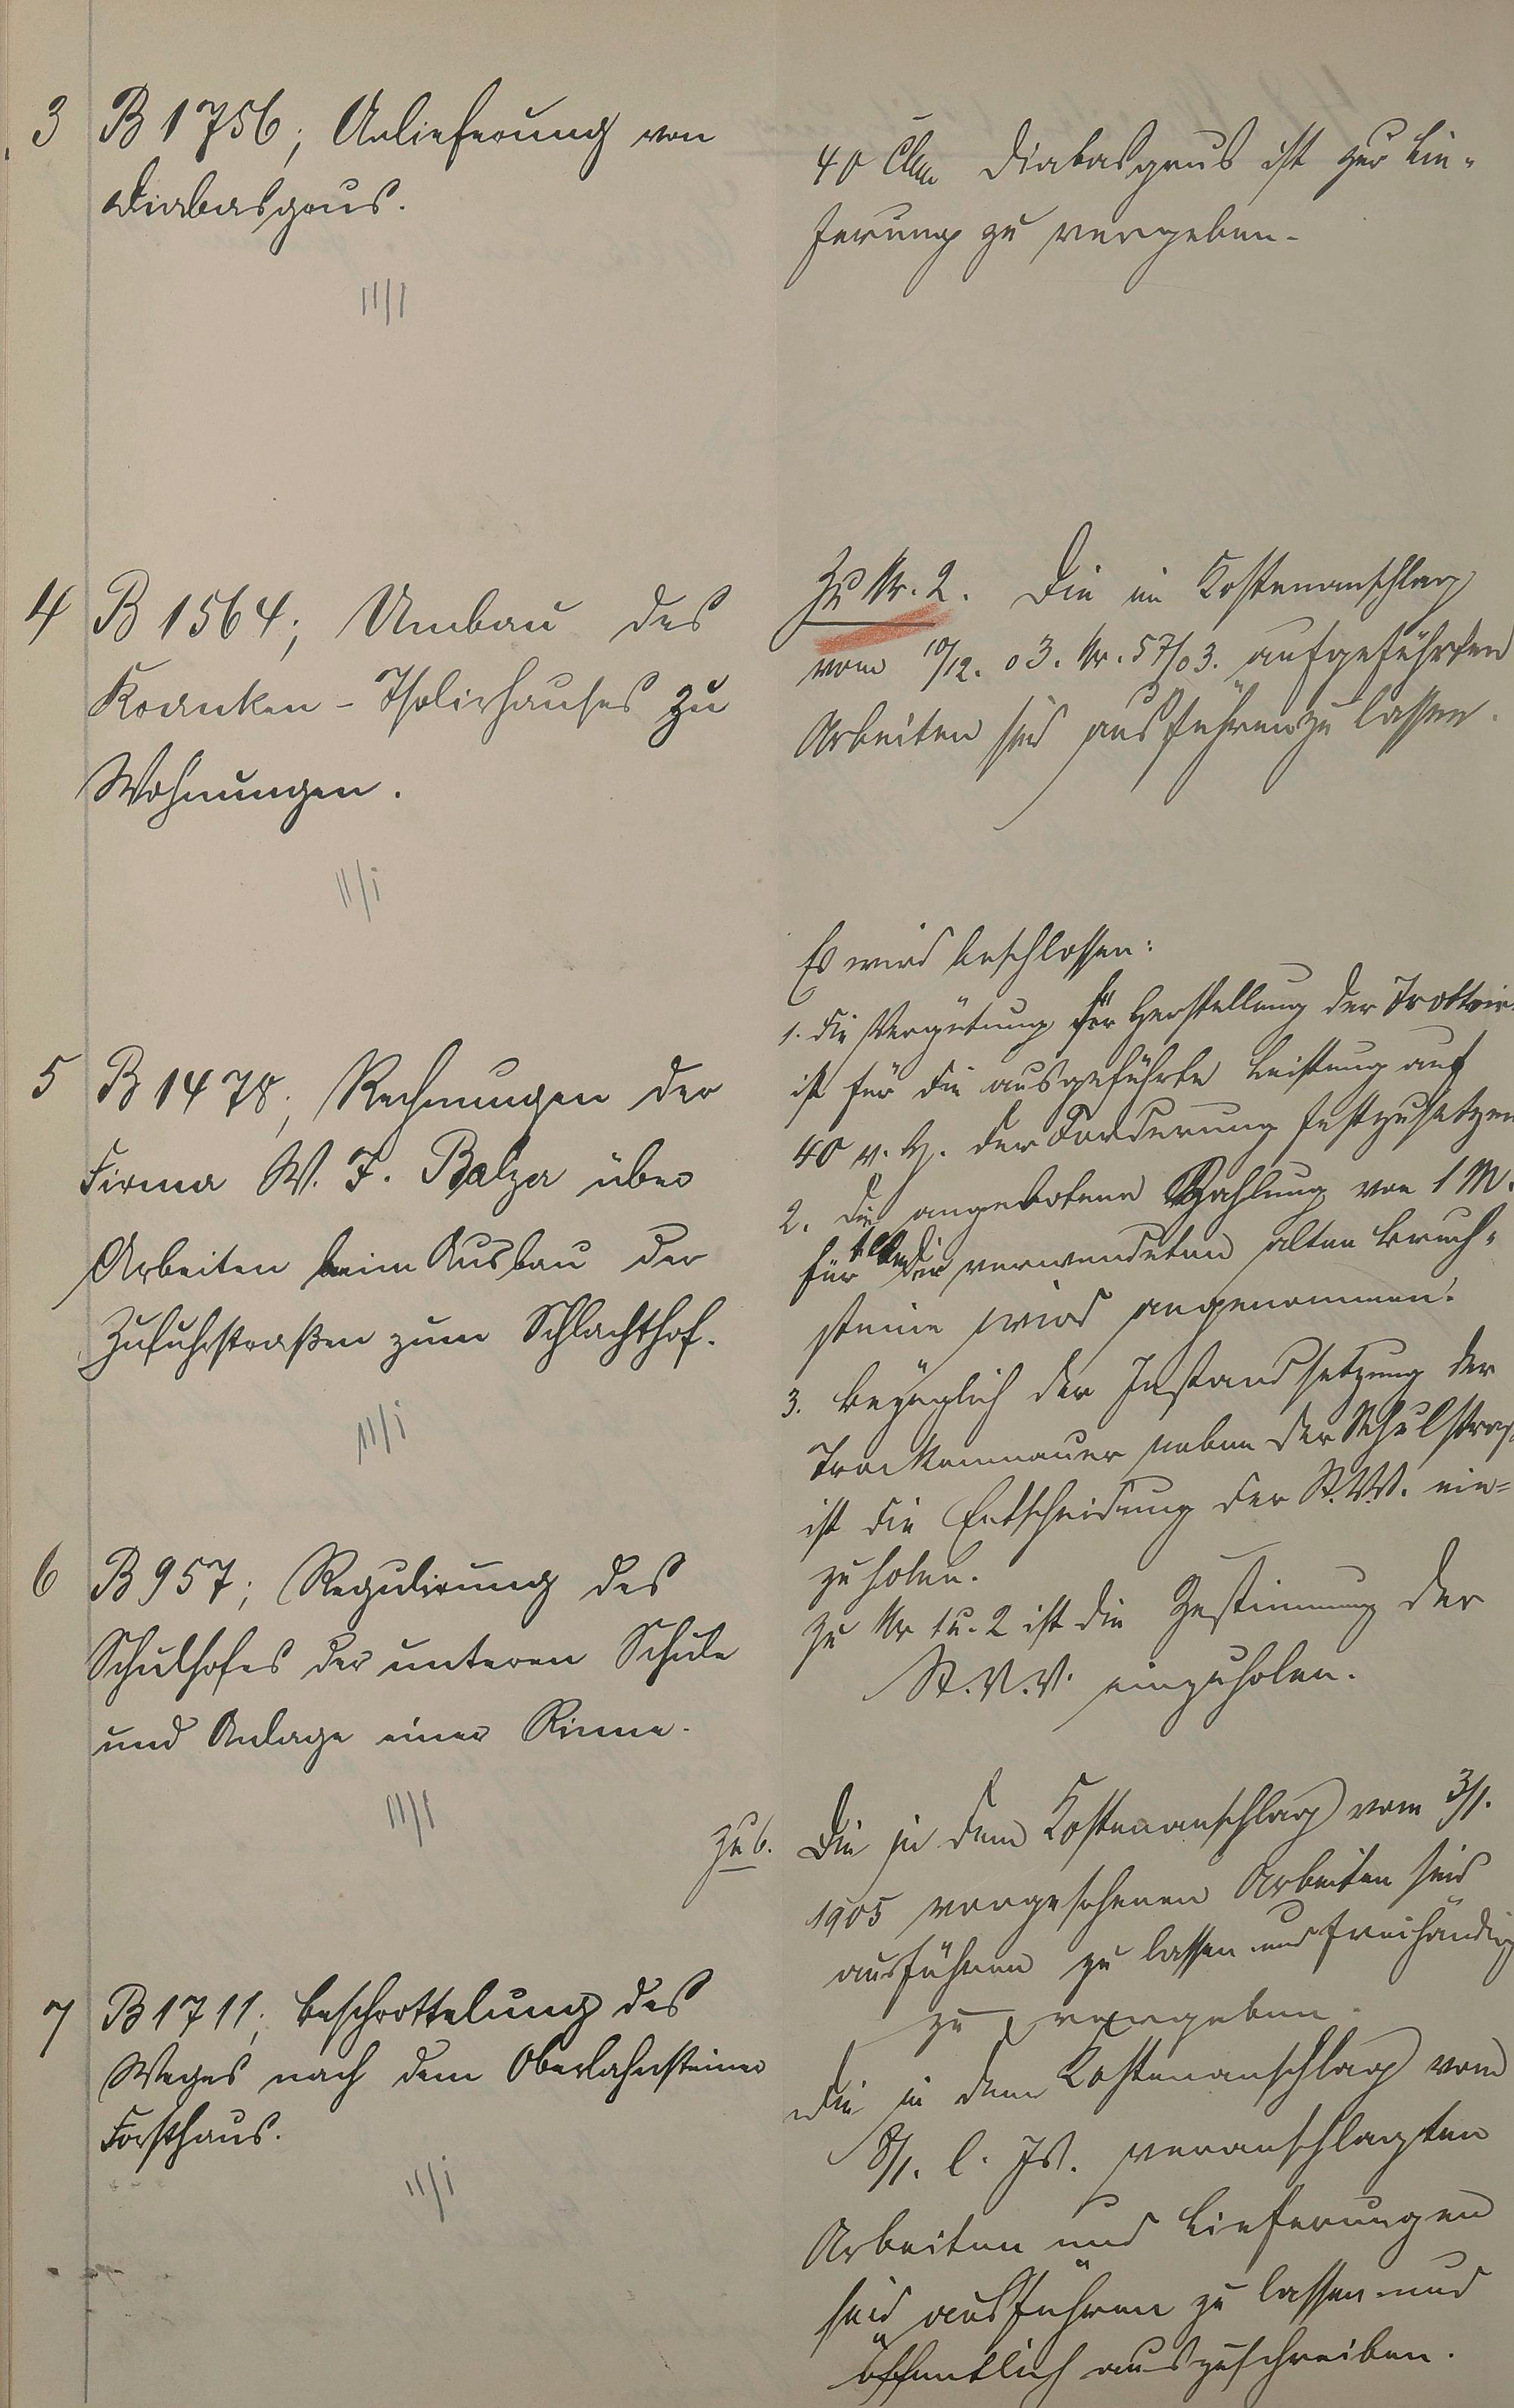 3 B 1756; Anlieferung von
Diabasgrus.
11/1
40 Cbm Diabasgrus ist zur Lie-
ferung zu vergeben.
4 B 1564; Umbau des
Kranken-Isolirhauses zu
Wohnungen.
11/1
Zu Nr. 2. Die im Kostenanschlag
vom 10/12. 03. Nr. 57/03. aufgeführten
Arbeiten sind ausführen zu lassen.
5 B 1478; Rechnungen der
Firma W. F. Balzer über
Arbeiten beim Ausbau der
Zufuhrstraßen zum Schlachthof.
11/1
Es wird beschlossen:
1. die Vergütung für Herstellung der Trottoir
ist für die ausgeführte Leistung auf
40 v. H. der Forderung festzusetzen
2. die angebotene Zahlung von 1 M.
für 1 cbm der verwendeten alten Bruch-
steine wird angenommen.
3. bezüglich der Instandsetzung der
Trockenmauer neben der Schulstraße
ist die Entscheidung der St.V.V. ein=
zuholen.
Zu Nr 1 u. 2 ist die Zustimmung der
St.V.V. einzuholen.
6 B 957; Regulirung des
Schulhofes der unteren Schule
und Anlage einer Rinne.
11/1
zu 6. Die in dem Kostenanschlag vom 3/1.
1905 vorgesehenen Arbeiten sind
ausführen zu lassen und freihändig
zu vergeben.
7 B 1711; Beschrottelung des
Weges nach dem Oberlahnsteiner
Forsthaus.
11/1
Die in dem Kostenanschlag vom
8/1. l. Js. veranschlagten
Arbeiten und Lieferungen
sind ausführen zu lassen und
öffentlich auszuschreiben.